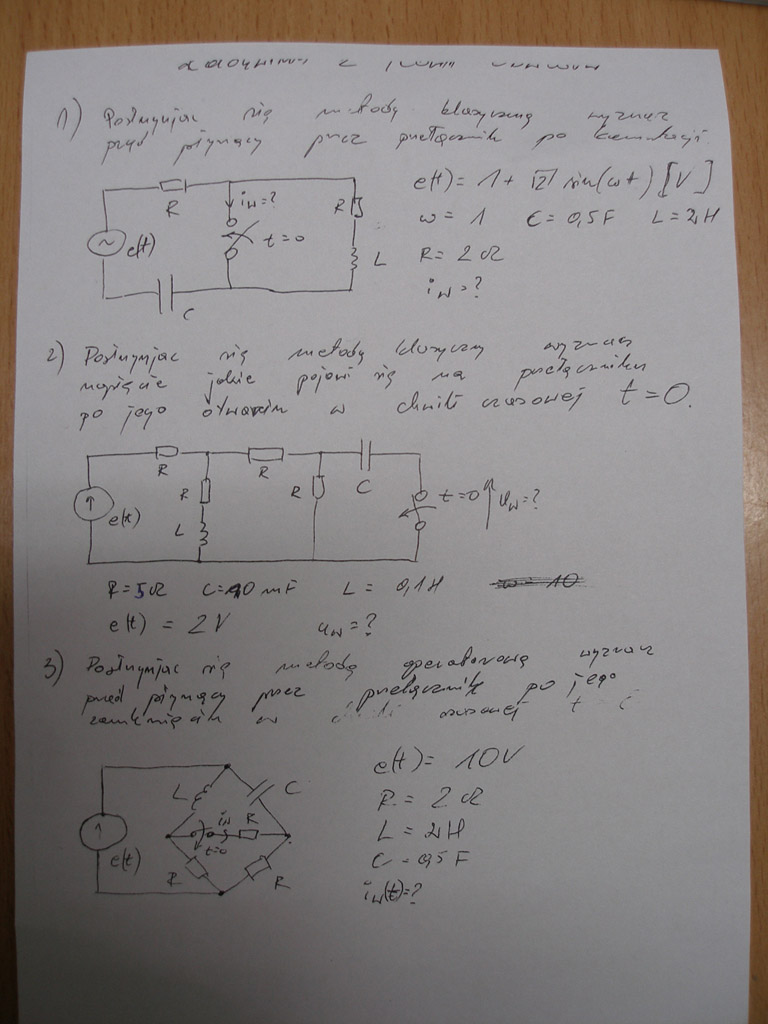 1) Posługując się metodą klasyczną wyznacz
prąd płynący przez przełącznik po komutacji.
e(t) = 1 + √2 sin(ωt) [V]
R
i_W = ?
R
ω = 1 C = 0,5F L = 2H
e(t)
t = 0
L
R = 2 Ω
C
i_W = ?
2) Posługując się metodą klasyczną wyznacz
napięcie jakie pojawi się na przełączniku
po jego otwarciu w chwili czasowej t = 0.
R
R
C
R
R
t = 0
u_W = ?
e(t)
L
R = 5 Ω C = 10 mF L = 0,1H
e(t) = 2V u_W = ?
3) Posługując się metodą operatorową wyznacz
prąd płynący przez przełącznik po jego
zamknięciu w czasowej t
e(t) = 10V
L
C
R = 2 Ω
i_W
R
L = 2H
t=0
e(t)
C = 0,5 F
R
R
i_W(t) = ?